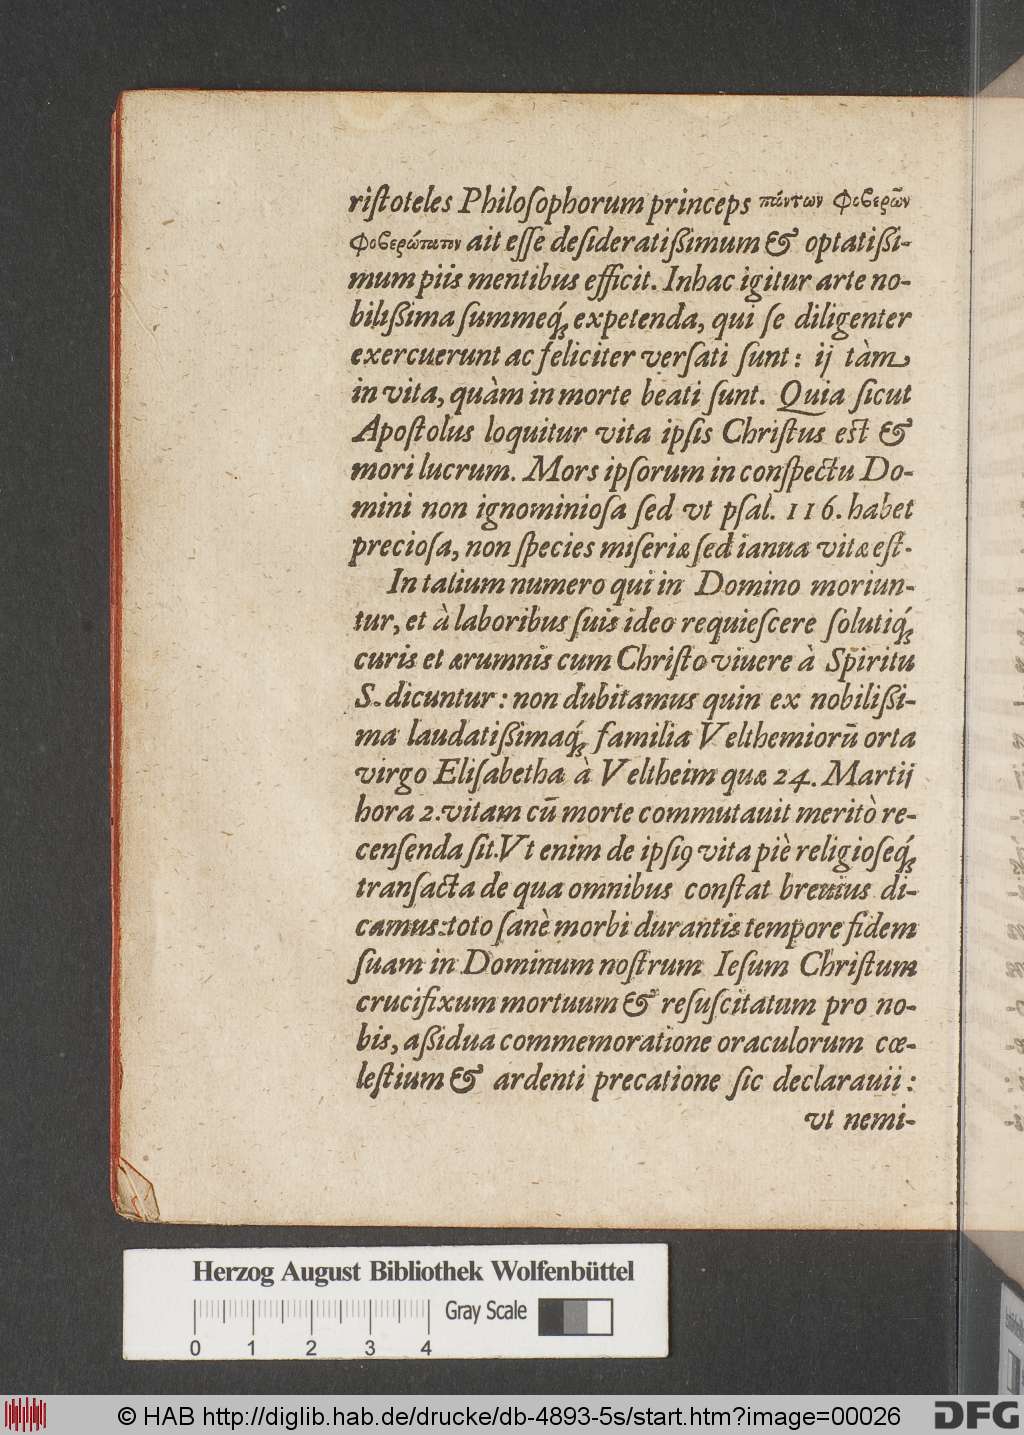 riſtoteles Philoſophorum princeps πάντων φοβερῶν
φοβερώτατον ait eſſe deſideratißimum & optatißi-
mum piis mentibus efficit. Inhac igitur arte no-
bilißima ſummeq́; expetenda, qui ſe diligenter
exercuerunt ac feliciter verſati ſunt: ij tàm
in vita, quàm in morte beati ſunt. Quia ſicut
Apoſtolus loquitur vita ipſis Chriſtus est &
mori lucrum. Mors ipſorum in conſpectu Do-
mini non ignominioſa ſed vt pſal. 116. habet
precioſa, non ſpecies miſeriæ ſed ianua vitæ eſt.
In talium numero qui in Domino moriun-
tur, et à laboribus ſuis ideo requieſcere ſolutiq́;
curis et ærumnis cum Chriſto viuere à Spiritu
S. dicuntur: non dubitamus quin ex nobilißi-
ma laudatißimaq́; familia Velthemiorū orta
virgo Eliſabetha à Veltheim quæ 24. Martij
hora 2. vitam cū morte commutauit meritò re-
cenſenda ſit. Vt enim de ipſiꝰ vita piè religioſeq́;
tranſacta de qua omnibus conſtat breuius di-
camus: toto ſanè morbi durantis tempore fidem
ſuam in Dominum noſtrum Ieſum Chriſtum
crucifixum mortuum & reſuſcitatum pro no-
bis, aßidua commemoratione oraculorum cœ-
leſtium & ardenti precatione ſic declarauii:
vt nemi-
Herzog August Bibliothek Wolfenbüttel
Gray Scale
0 1 2 3 4
© HAB http://diglib.hab.de/drucke/db-4893-5s/start.htm?image=00026
DFG